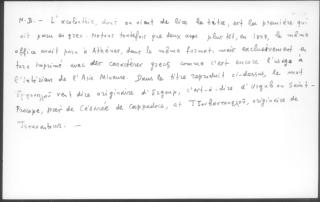 N.B. – L'acolouthie, dont on vient de lire le titre, est la première qui
ait paru en grec. Notons toutefois que deux ans plus tôt, en 18, le même
office avait paru à Athènes, dans le même format, mais exclusivement en
turc imprimé avec des caractères grecs comme c'est encore l'usage à
l'intérieur de l'Asie Mineure. Dans le titre reproduit ci-dessus, le mot
veut dire originaire d', c'est-à-dire d' ou Saint-
Procope, près de Césarée de Cappadoce, et, originaire de